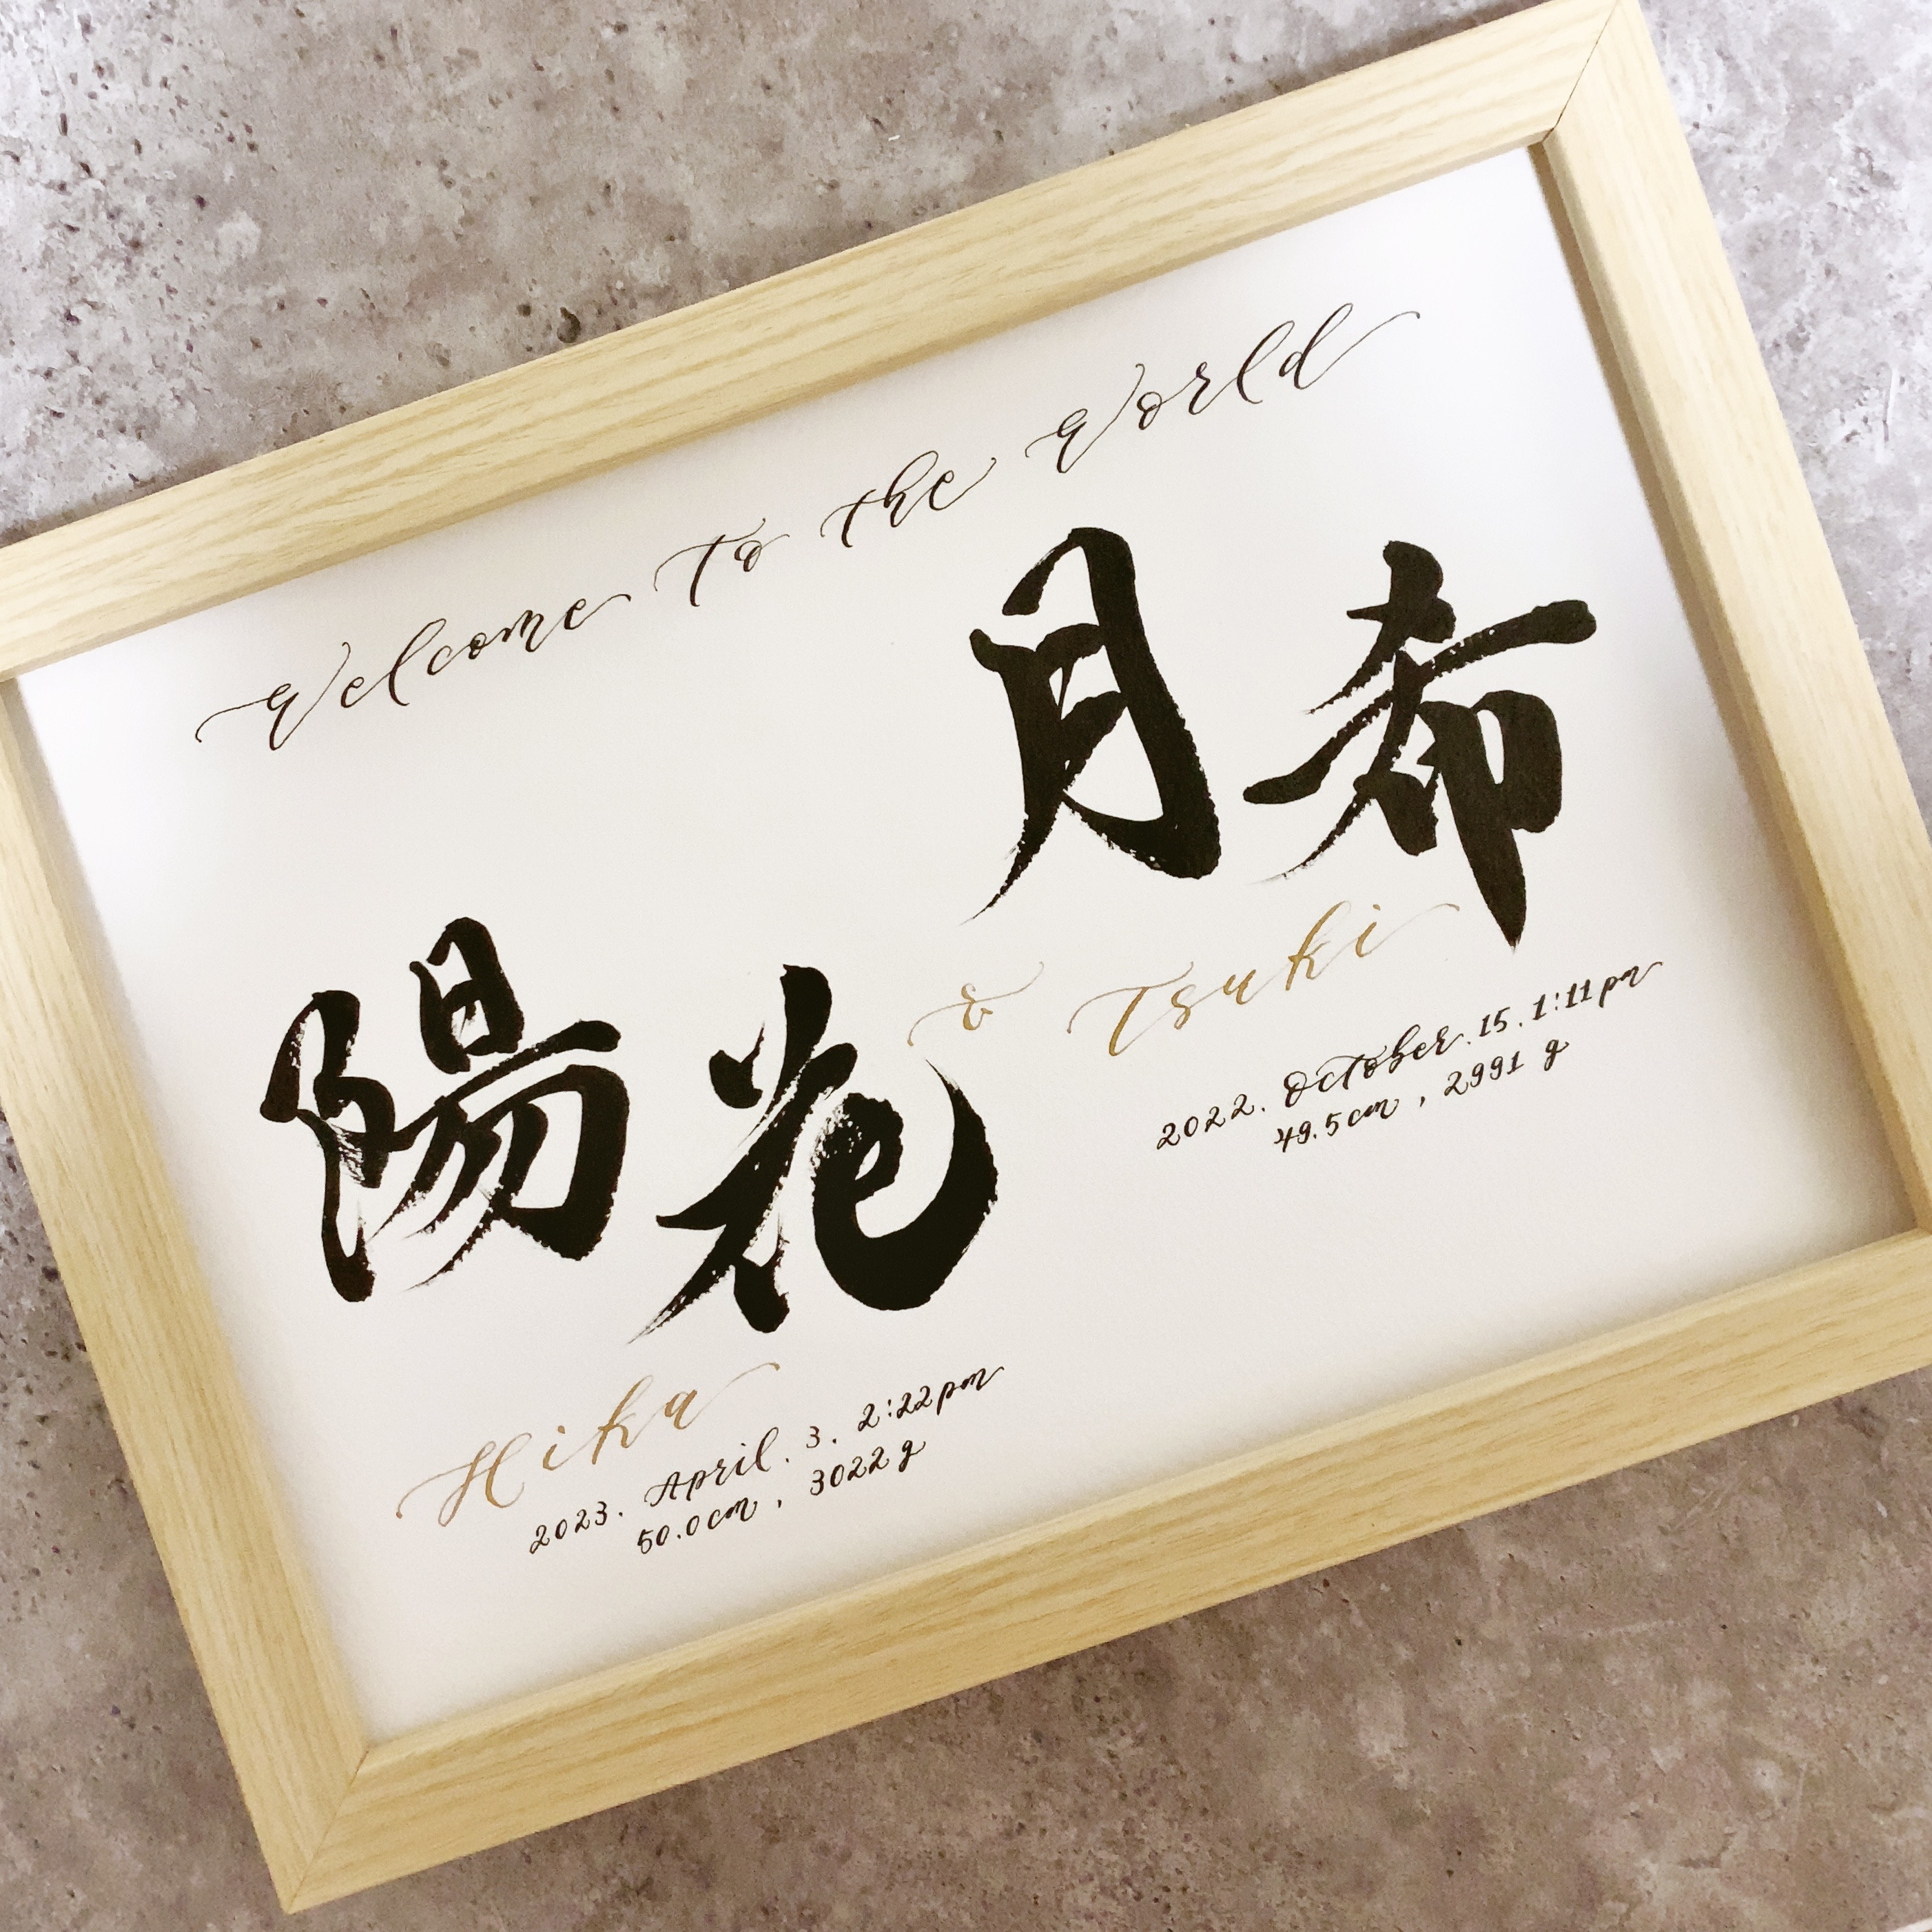 Welcome to the World
月希
& Tsuki
2022. October. 15. 1:11pm
49.5cm, 2991 g
陽花
Hika
2023. April. 3. 2:22pm
50.0cm, 3022g